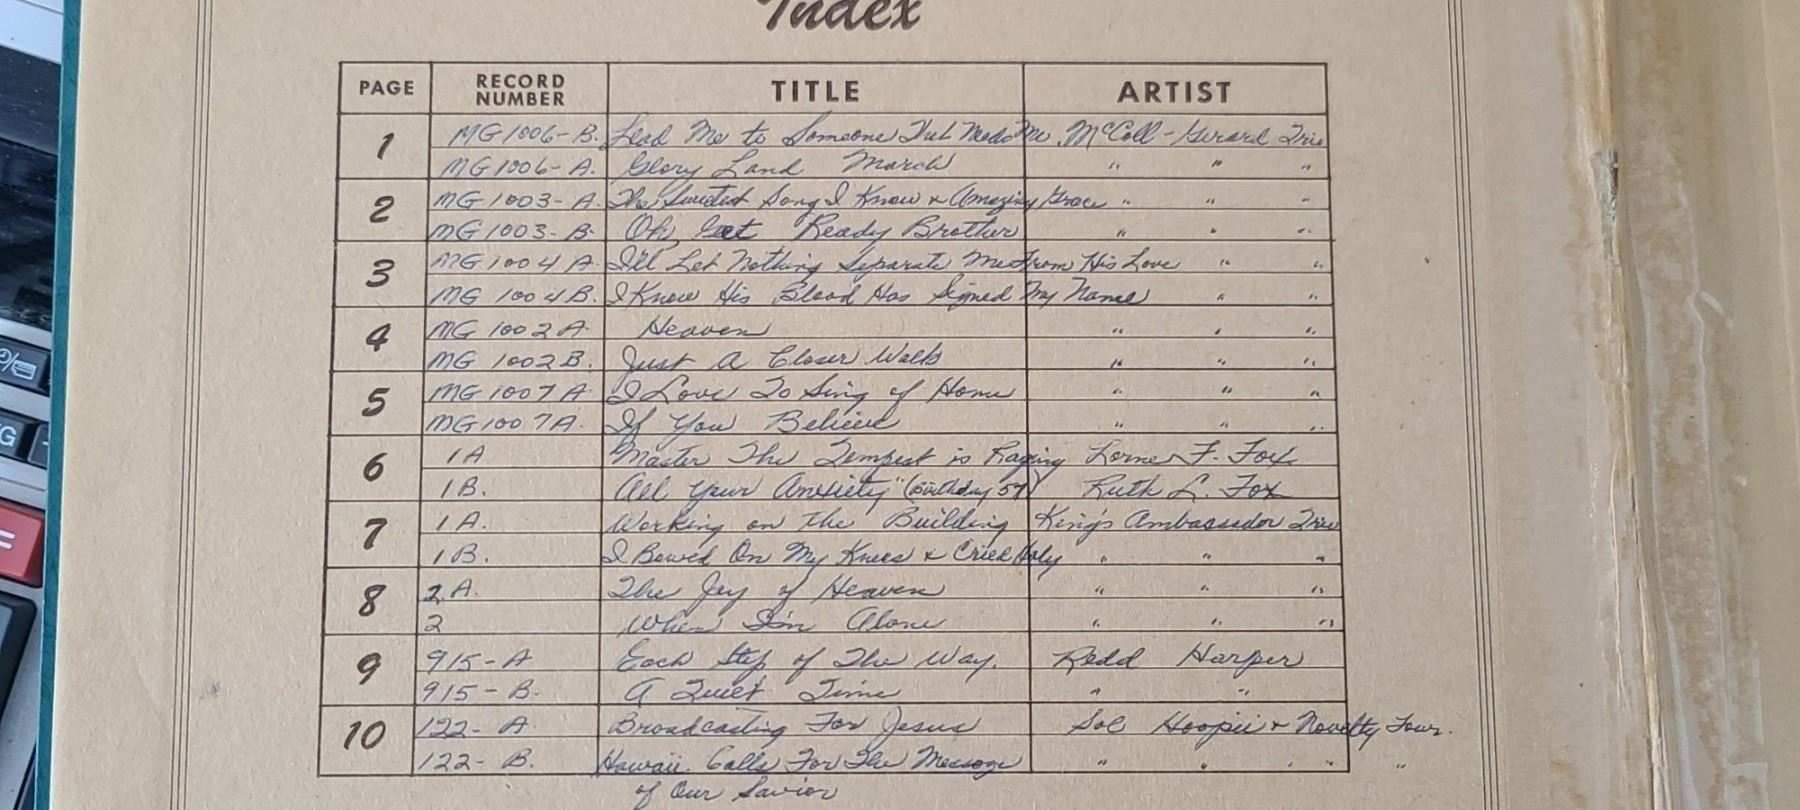 Index
PAGE RECORD NUMBER TITLE ARTIST
1 MG 1006-B. Lead Me to Someone That Needs Me. McColl-Gerard Trio
MG 1006-A. Glory Land March " " "
2 MG 1003-A. The Sweetest Song I Know & Amazing Grace " " "
MG 1003-B. Oh, Get Ready Brother " " "
3 MG 1004 A. I'll Let Nothing Separate Me From His Love " "
MG 1004 B. I Know His Blood Has Signed My Name " "
4 MG 1002 A. Heaven " " "
MG 1002 B. Just A Closer Walk " " "
5 MG 1007 A I Love To Sing of Home " " "
MG 1007 A. If You Believe " " "
6 1A Master The Tempest is Raging Lorne F. Fox
1B. All Your Anxiety" (Birthday 57) Ruth L. Fox
7 1A. Working on the Building King's Ambassador Trio
1B. I Bowed On My Knees & Cried Holy " " "
8 2A. The Joy of Heaven " " "
2 When I'm Alone " " "
9 915-A Each Step of The Way. Redd Harper
915-B. A Quiet Time " "
10 122-A Broadcasting For Jesus Sol Hoopii & Novelty Four.
122-B. Hawaii Calls For The Message " " " " "
of Our Savior
G
=